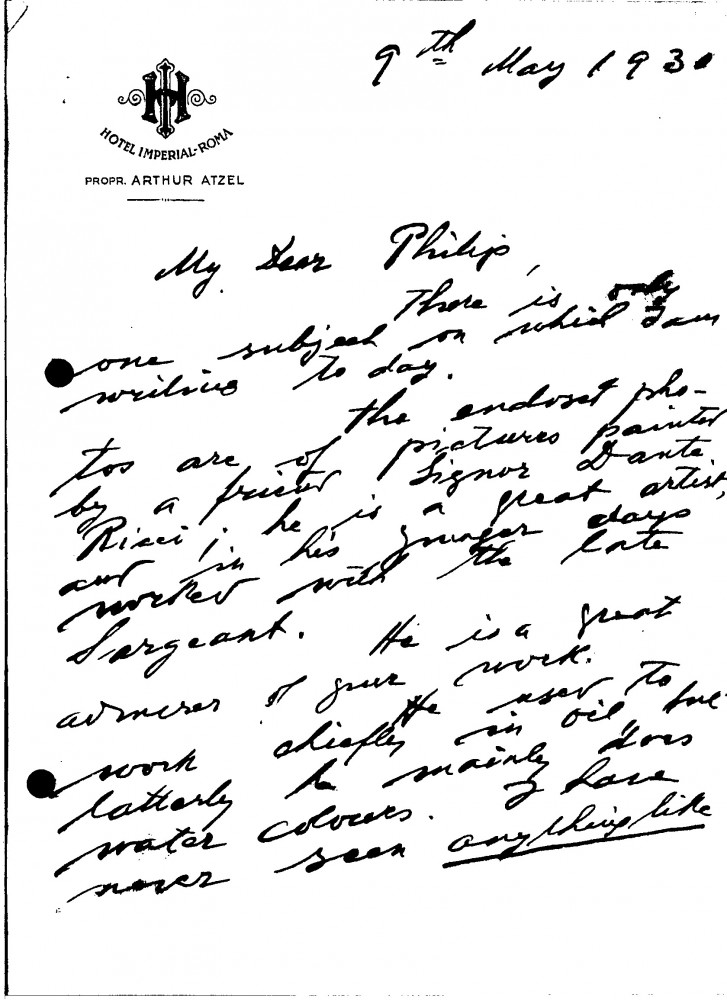 9th May 193
HOTEL IMPERIAL-ROMA
PROPR. ARTHUR ATZEL
My Dear Philip,
There is only
one subject on which I am
writing to day.
The enclosed pho-
tos are of pictures painted
by a friend Signor Dante
Ricci; he is a great artist,
and in his younger days
worked with the late
Sargeant. He is a great
admirer of your work.
He used to
work chiefly in oil but
latterly he mainly does
water colours. I have
never seen anything like